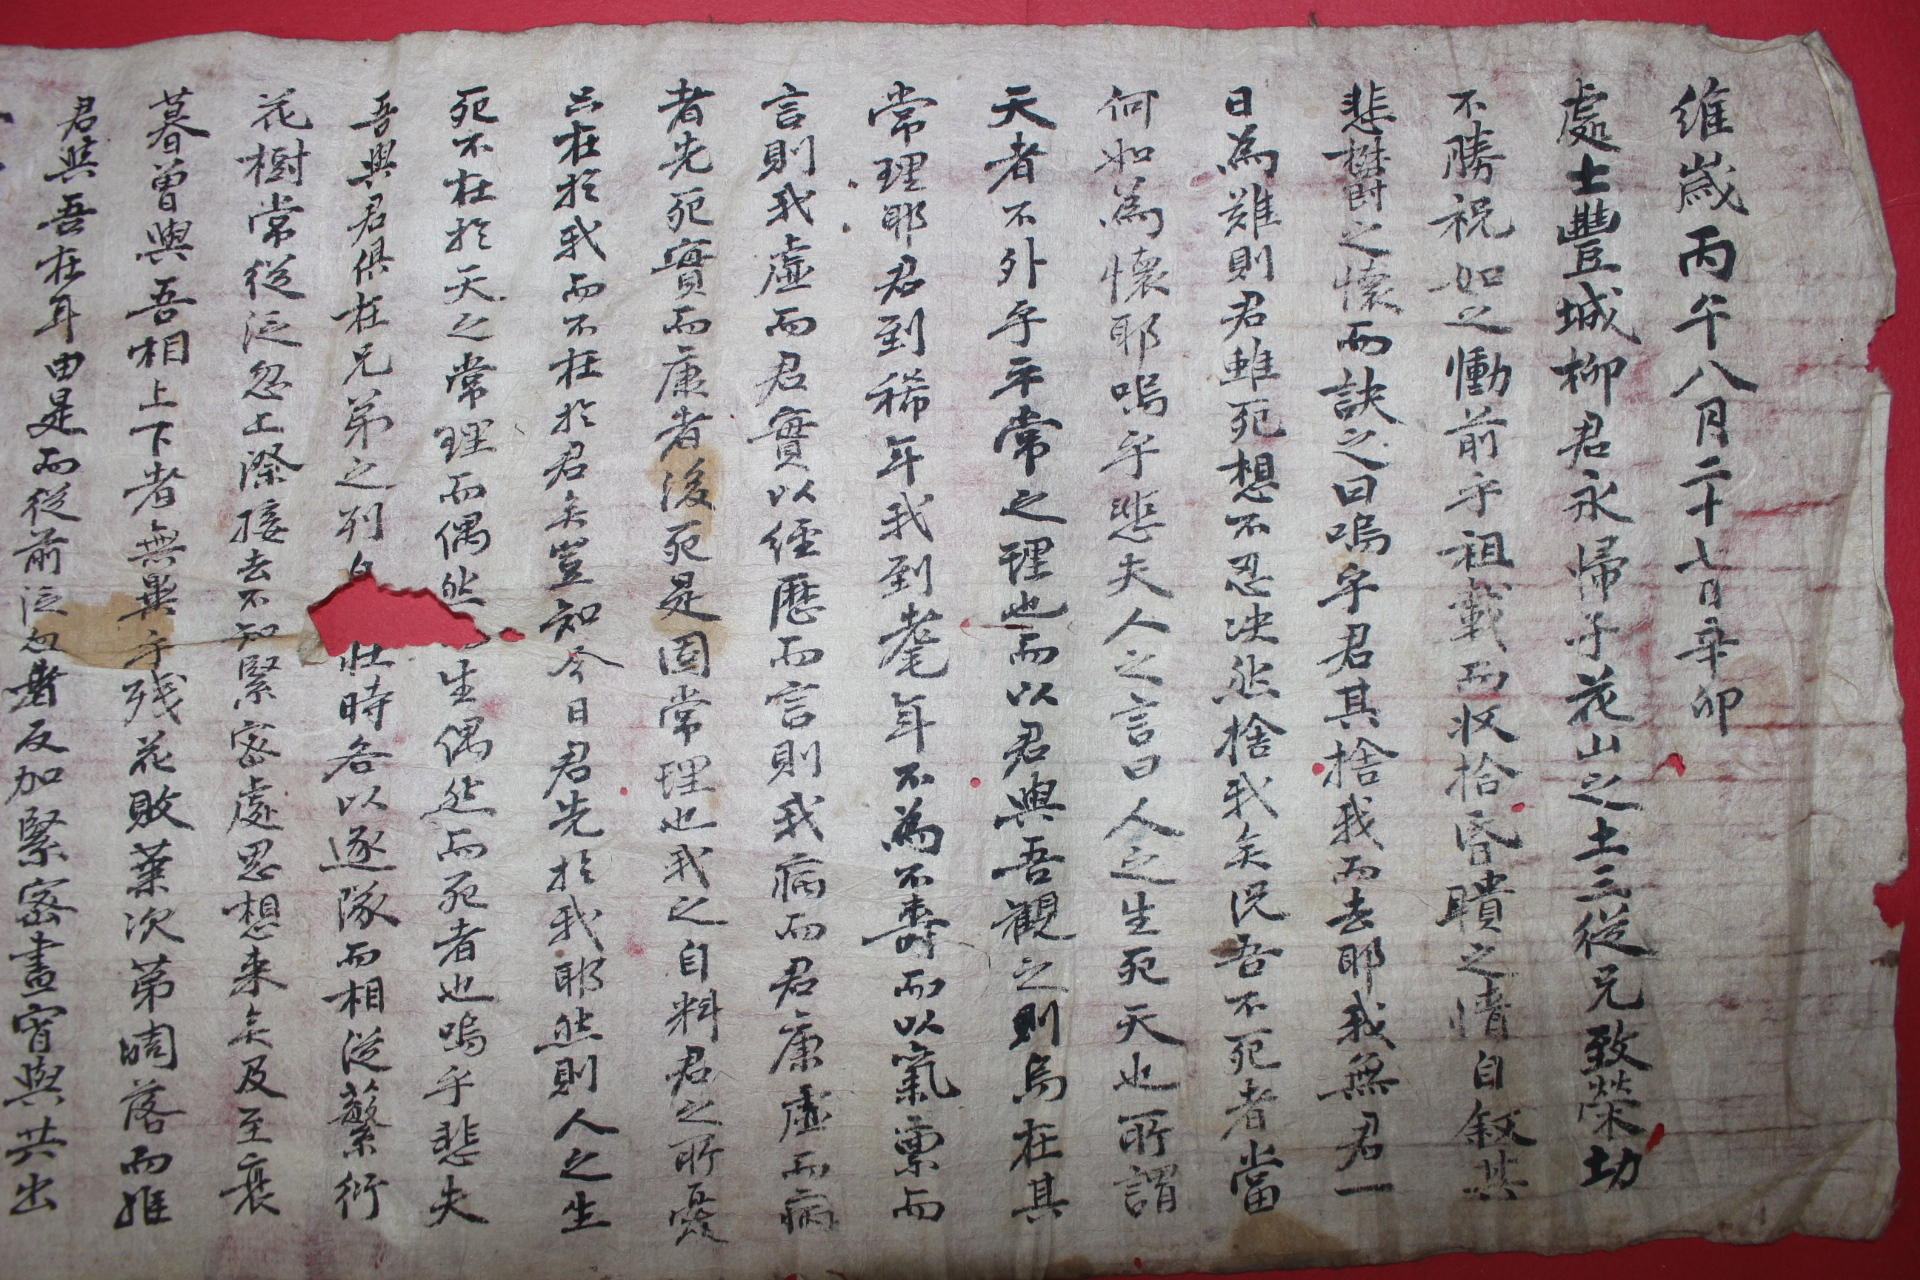 維歲丙午八月二十七日辛卯
處士豐城柳君永歸于花山之土三從兄致榮切
不勝祝如之慟前乎祖載而收拾昏聵之情自敍其
悲欝之懷而訣之曰嗚乎君其捨我而去耶我無君一
日為難則君雖死想不忍决然捨我矣况吾不死者當
何如為懷耶嗚乎悲夫人之言曰人之生死天也所謂
天者不外乎平常之理也而以君與吾觀之則烏在其
常理耶君到稀年我到耄年不為不壽而以氣稟而
言則我虛而君實以經歷而言則我病而君康虛而病
者先死實而康者後死是固常理也我之自料君之所憂
只在於我而不在於君矣豈知今日君先於我耶然則人之生
死不在於天之常理而偶然生偶然而死者也嗚乎悲夫
吾與君俱在兄弟之列壯時各以逐隊而相從蘩衍
花樹常從泛忽上際接去不知緊密處思想來矣及至衰
暮曾與吾相上下者無異乎殘花敗葉次第凋落而惟
君與吾在耳由是而從前泛忽者反加緊密晝宵與共出